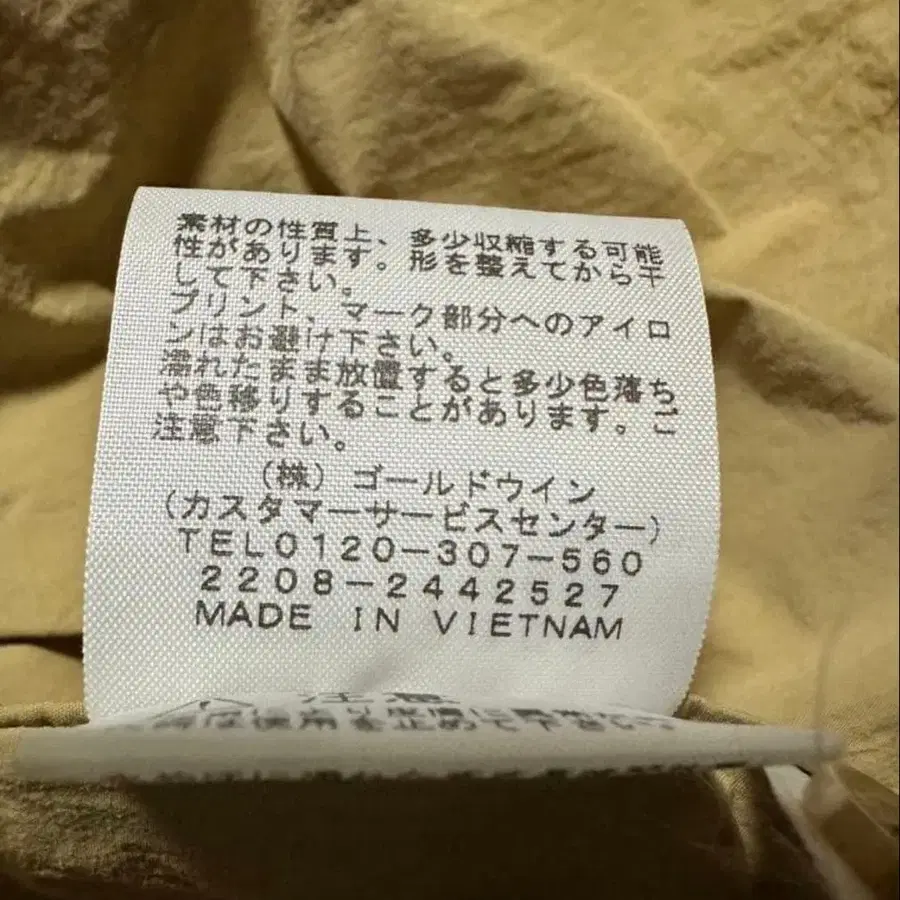 素材の性質上、多少収縮する可能
性があります。形を整えてから干
して下さい。
プリント、マーク部分へのアイロ
ンはお避け下さい。
濡れたまま放置すると多少色落ち
や色移りすることがあります。ご
注意下さい。
(株) ゴールドウイン
(カスタマーサービスセンター)
TEL0120-307-560
2208-2442527
MADE IN VIETNAM
注意